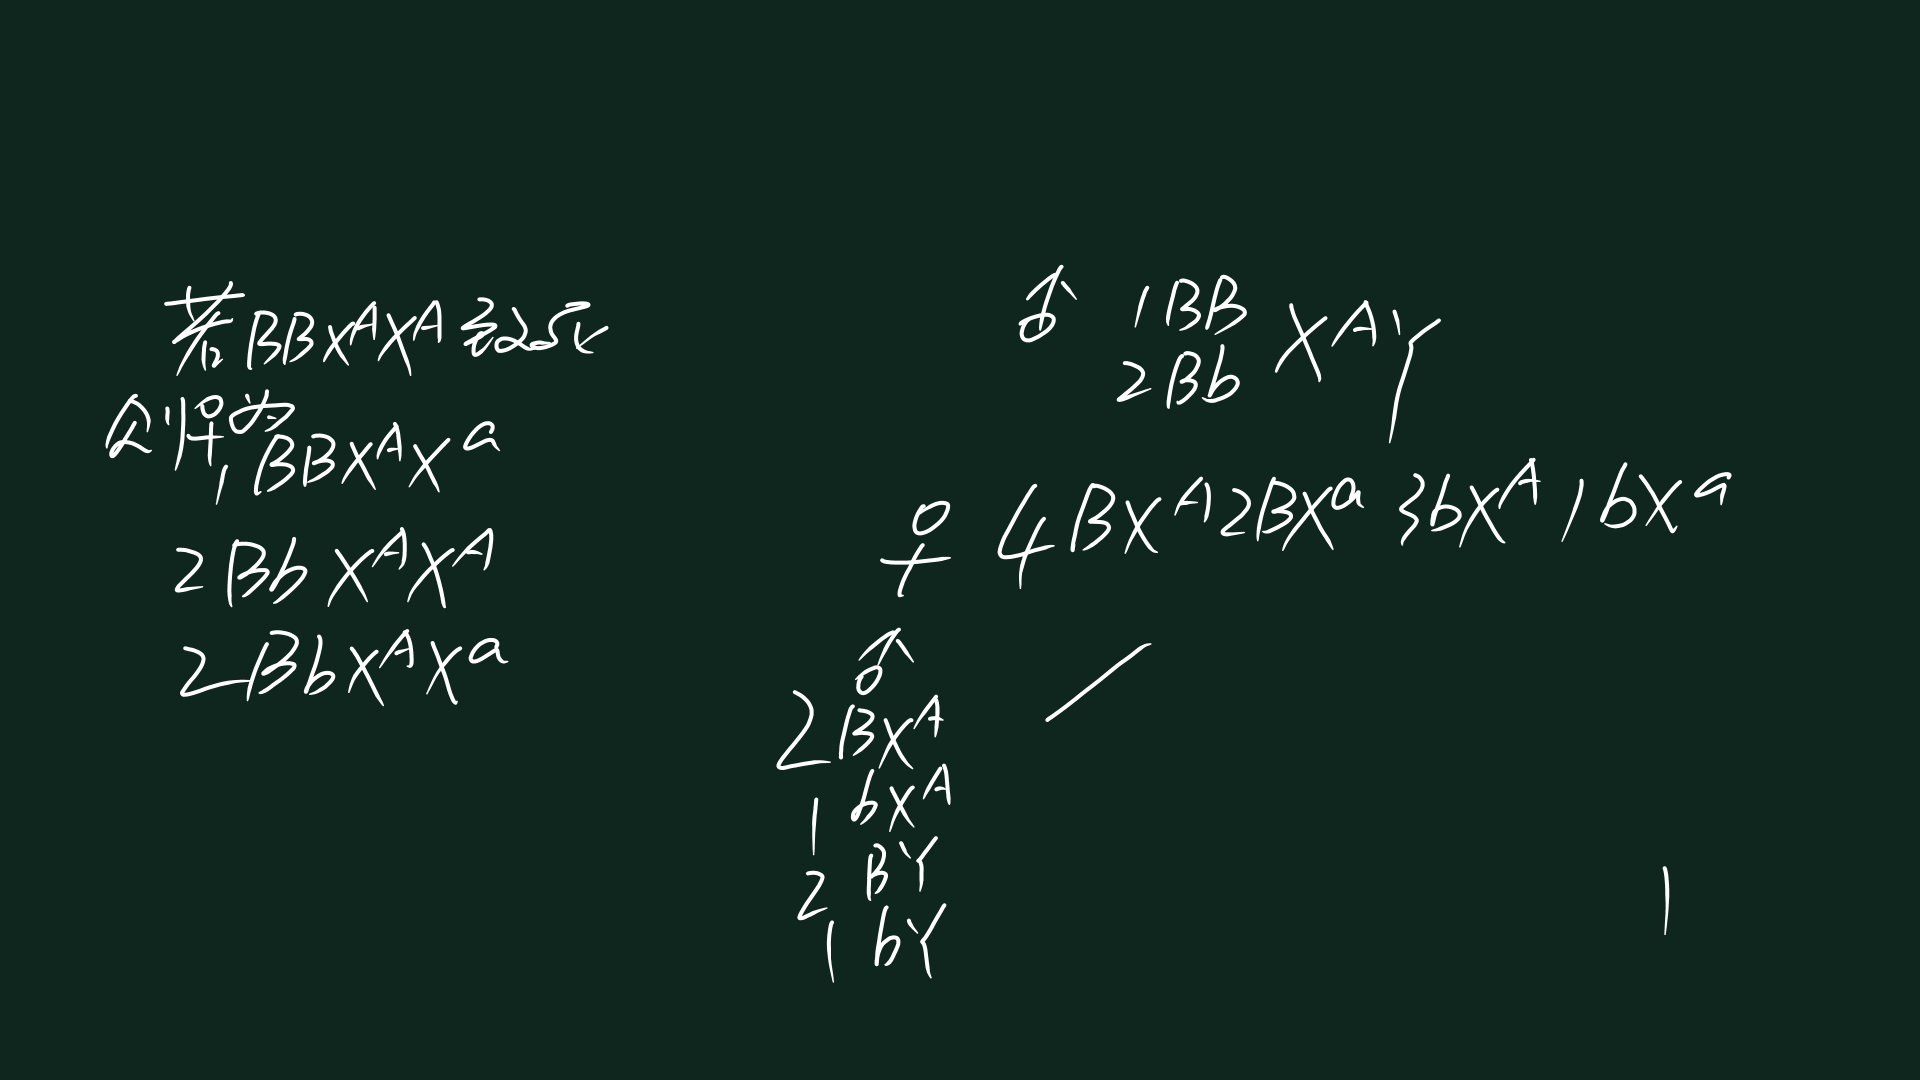 若BBXᴬXᴬ致死
则♀为
1BBXᴬXᵃ
2BbXᴬXᴬ
2BbXᴬXᵃ
♂ 1BB XᴬY
2Bb
♀ 4BXᴬ 2BXᵃ 3bXᴬ 1bXᵃ
♂
2BXᴬ
1bXᴬ
2BY
1bY
1